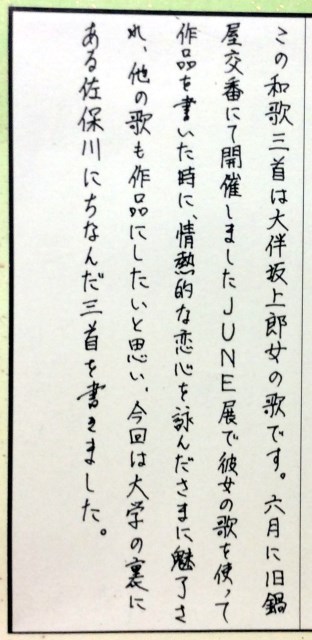 この和歌三首は大伴坂上郎女の歌です。六月に旧鍋
屋交番にて開催しましたJUNE展で彼女の歌を使って
作品を書いた時に、情熱的な恋心を詠んださまに魅了さ
れ、他の歌も作品にしたいと思い、今回は大学の裏に
ある佐保川にちなんだ三首を書きました。